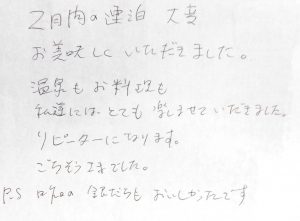 2日間の連泊 大変
お美味しくいただきました。
温泉もお料理も
私達にはとても楽しませていただきました。
リピーターになります。
ごちそうさまでした。
P.S の銀だらもおいしかったです